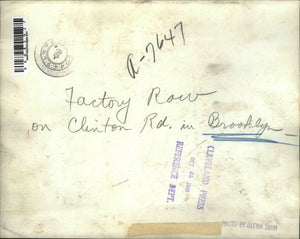 A-7647
Factory Row
on Clinton Rd. in Brooklyn
CLEVELAND PRESS
REFERENCE DEPT.
PHOTO BY GLENN ZAHN